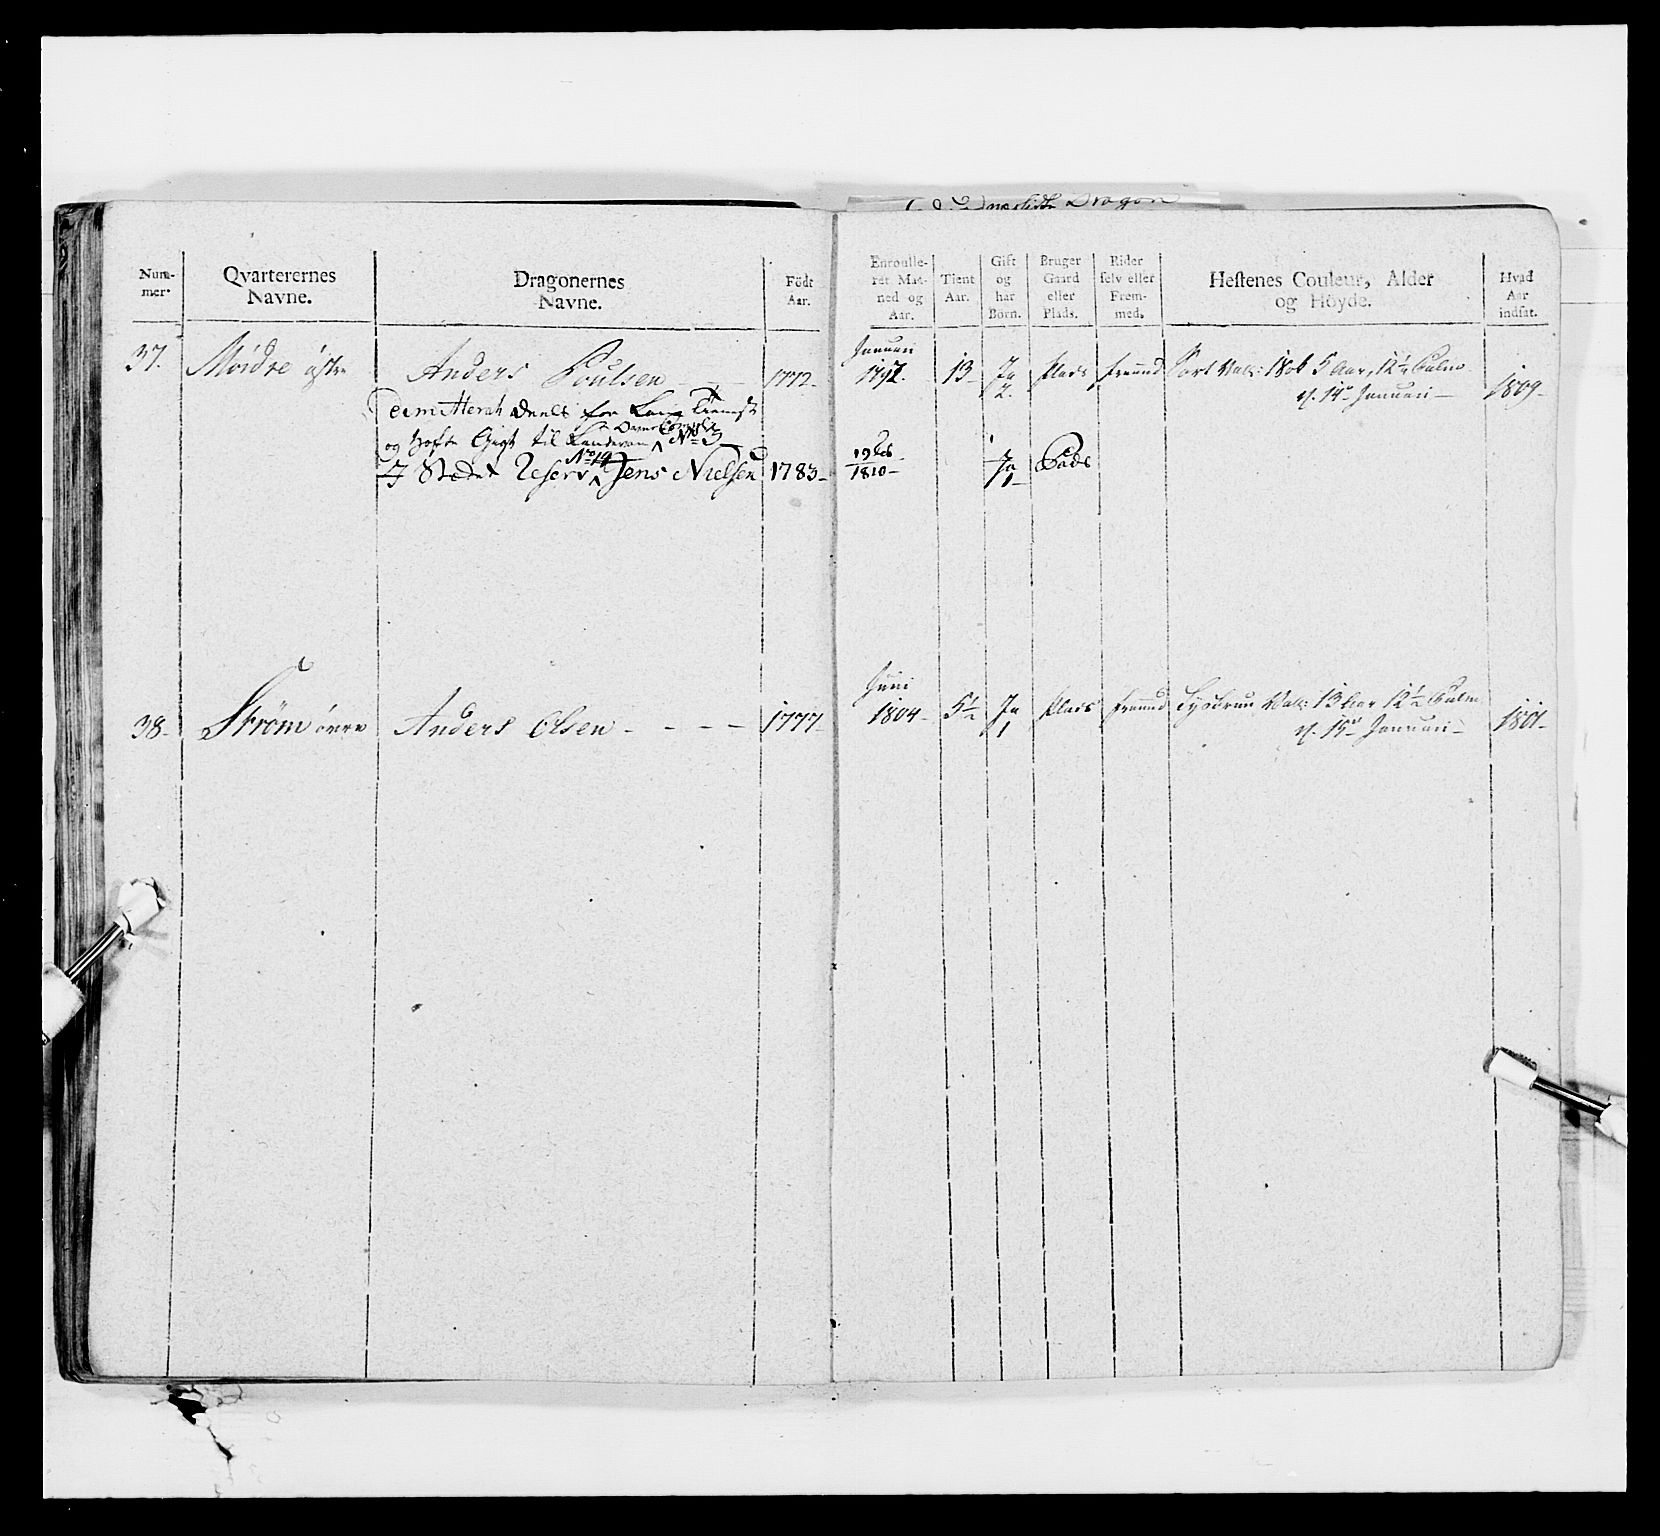 Dragon
Num-
mer.
Qvarterernes
Navne.
Dragonernes
Navne.
Födt
Aar.
Enroulle-
ret Maa-
ned og
Aar.
Tient
Aar.
Gift
og
har
Börn.
Bruger
Gaard
eller
Plads.
Rider
selv eller
Frem-
med.
Hestenes Couleur, Alder
og Höyde.
Hvad
Aar
indsat.
37. Moidre östre Anders Poulsen 1772. Januari 1797. 13 Ja 2. Plads fremmed Sort Val: 1806 5 Aar, 12½ Qulm
14de Januari 1809
Demitterat deels for Lang Tienest
og Hofte Gigt til Landeværn No 3
I Stædet Reserv No 19 Jens Nielsen 1783 19 Feb 1810 Ja 1 Plads
38 Strøm övre Anders Olsen - - - - 1777 Juni 1804 5½ Ja 1 Plads fremmed Val: 13 Aar 12½ Qulm
15de Januari 1801